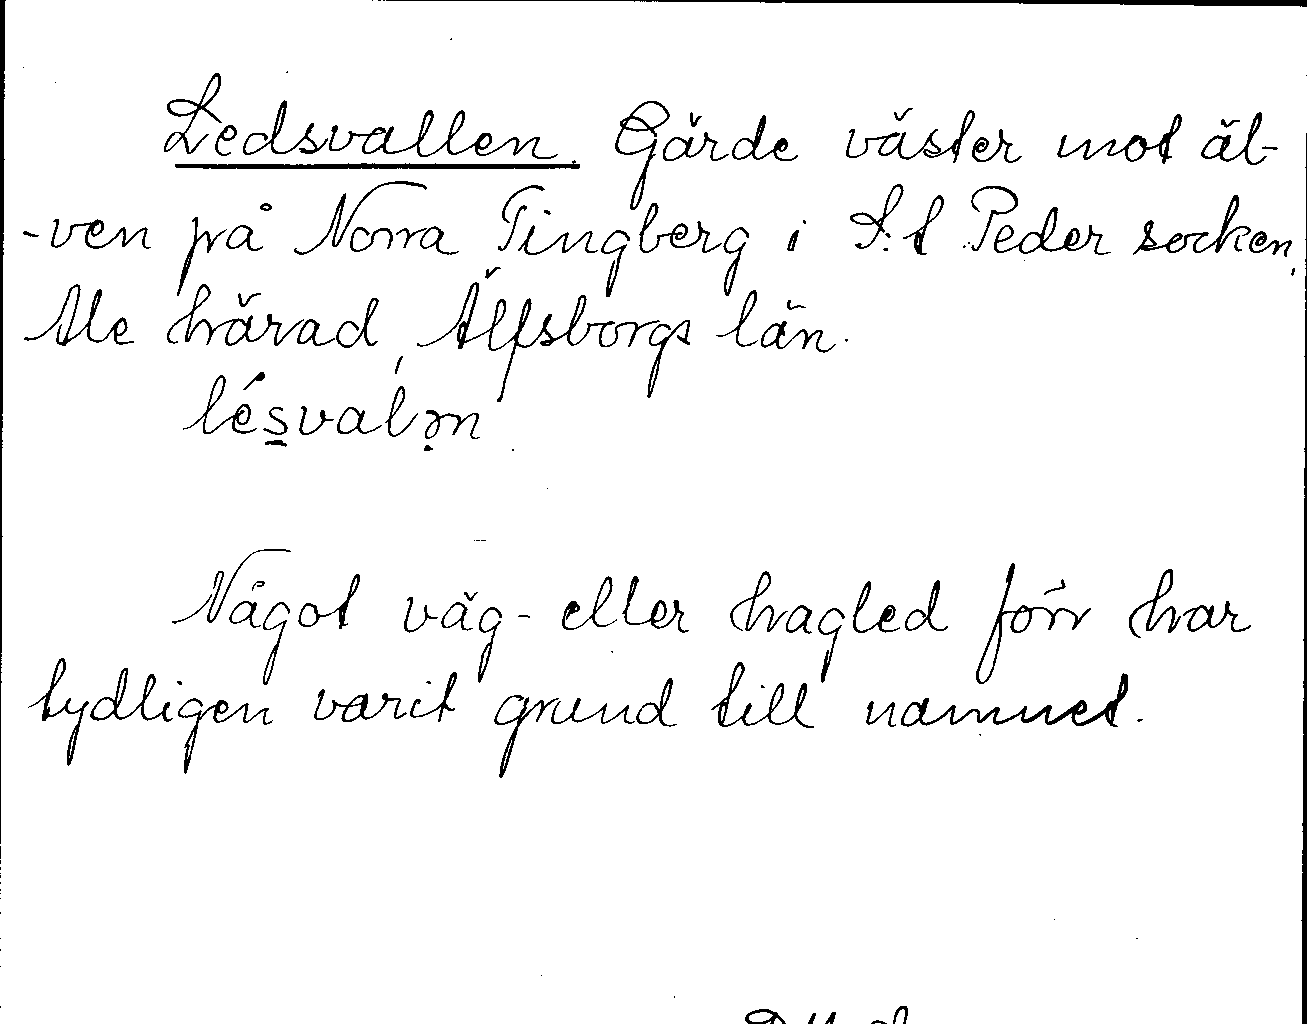 Ledsvallen. Gärde väster mot äl-
-ven på Norra Tingberg i S:t Peder socken,
Ale härad, Älfsborgs län.
lésvalən
Något väg- eller hagled förr har
tydligen varit grund till namnet.